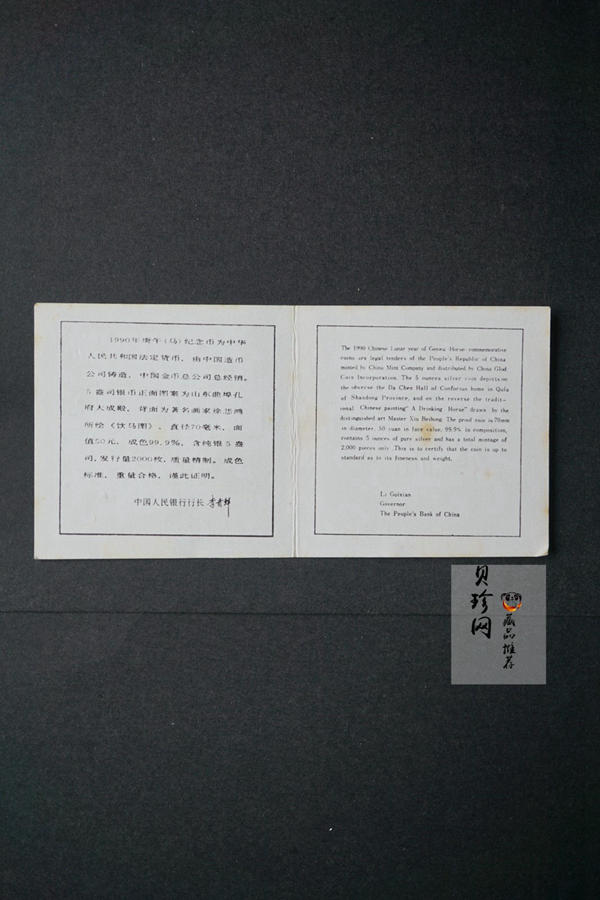 1990年庚午(马)纪念币为中华
人民共和国法定货币，由中国造币
公司铸造，中国金币总公司总经销。
5盎司银币正面图案为山东曲埠孔
府大成殿，背面为著名画家徐悲鸿
所绘《饮马图》。直径70毫米，面
值50元，成色99.9%，含纯银5盎
司，发行量2000枚，质量精制。成色
标准，重量合格，谨此证明。
中国人民银行行长 李贵鲜
The 1990 Chinese Lunar year of Gengwu Horse commemorative
coins are legal tenders of the People's Republic of China
minted by China Mint Company and distributed by China Glod
Coin Incorporation. The 5 ounces silver coin depicts on
the obverse the Da Chen Hall of Confucius home in Qufu
of Shandong Province, and on the reverse the tradit-
ional Chinese painting "A Drinking Horse" drawn by the
distinguished art Master Xiu Beihong. The proof coin is 70mm
in diameter, 50 yuan in face value, 99.9% in composition,
contains 5 ounces of pure silver and has a total mintage of
2,000 pieces only. This is to certify that the coin is up to
standard as to its fineness and weight.
Li Guixian
Governor
The People's Bank of China
贝珍网
藏品推荐